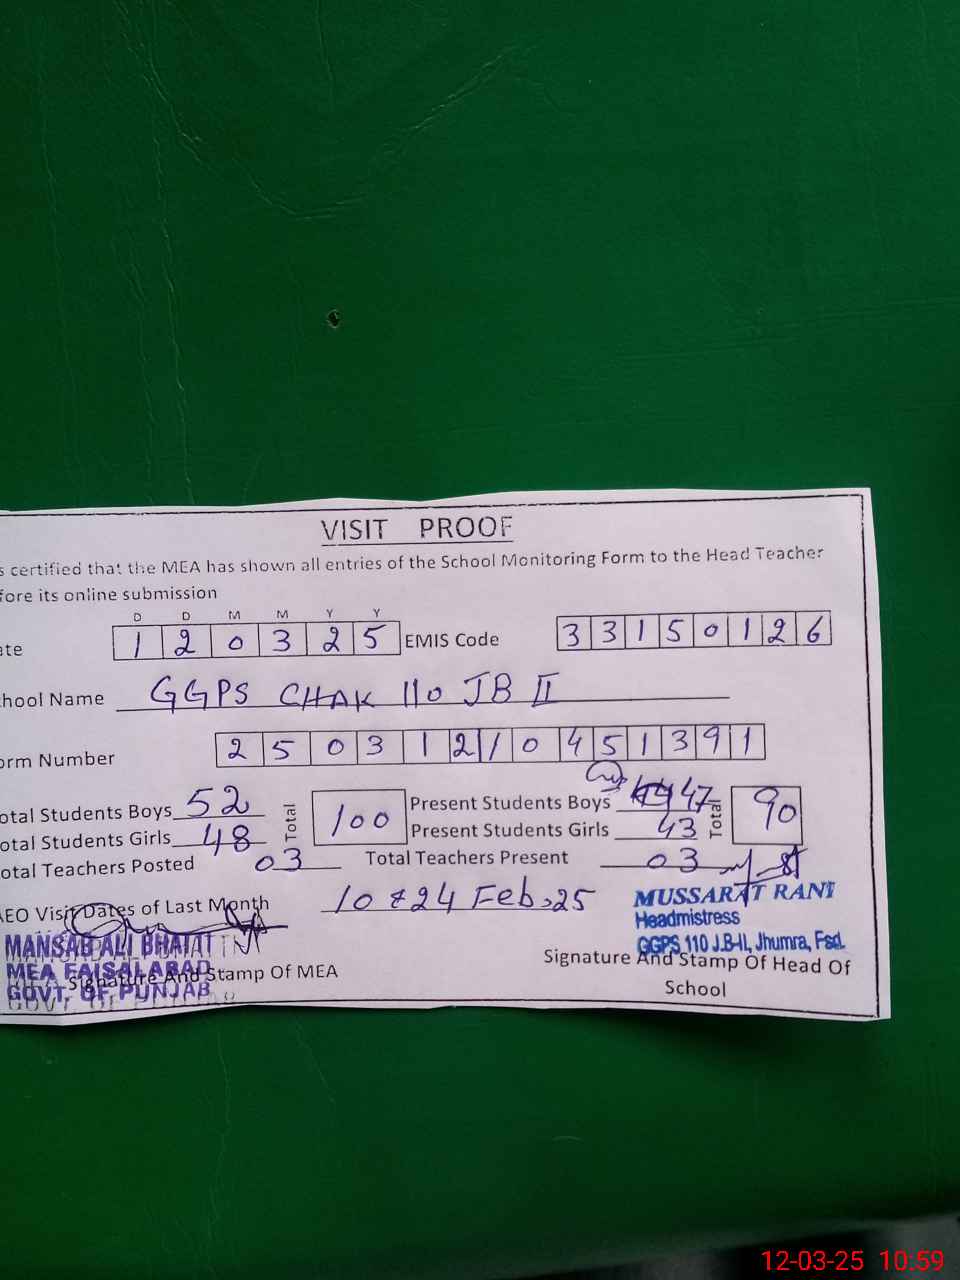 VISIT PROOF
s certified that the MEA has shown all entries of the School Monitoring Form to the Head Teacher
fore its online submission
D D M M Y Y
ate 1 2 0 3 2 5 EMIS Code 3 3 1 5 0 1 2 6
hool Name GGPS CHAK 110 JB II
orm Number 2 5 0 3 1 2 1 0 4 5 1 3 9 1
otal Students Boys 52 Total 100 Present Students Boys 47 Total 90
otal Students Girls 48 Present Students Girls 43
otal Teachers Posted 03 Total Teachers Present 03
AEO Visit Dates of Last Month 10 & 24 Feb, 25
MUSSARAT RANI
Headmistress
GGPS 110 J.B-II, Jhumra, Fsd.
MANSAB ALI BHATTI
MEA FAISALABAD
GOVT. OF PUNJAB
Signature And Stamp Of MEA
Signature And Stamp Of Head Of
School
12-03-25 10:59